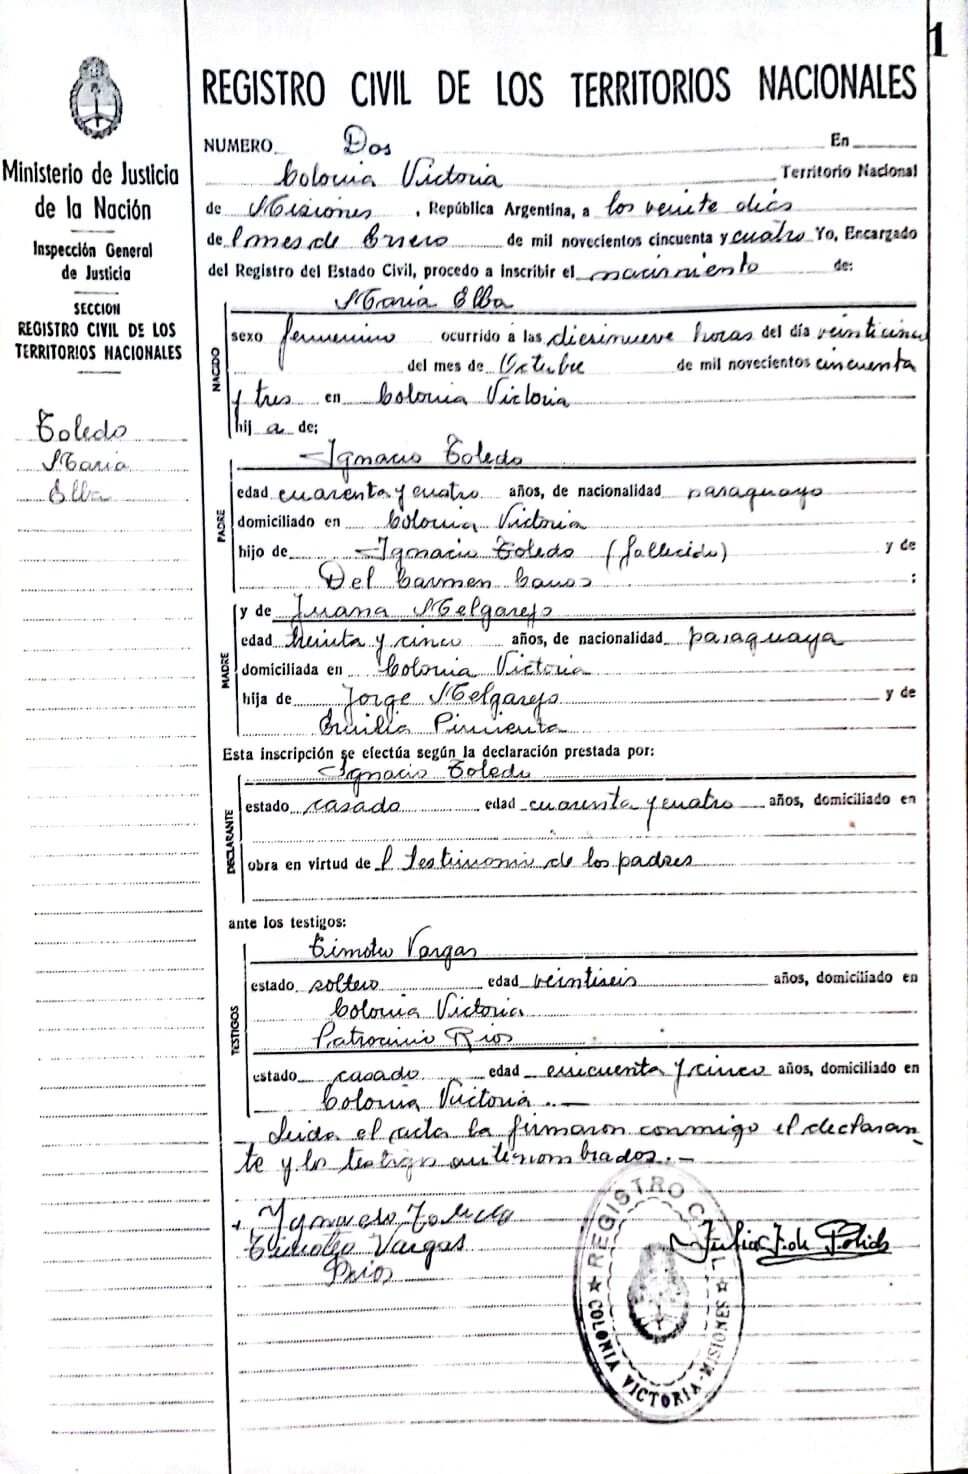 1
REGISTRO CIVIL DE LOS TERRITORIOS NACIONALES
Ministerio de Justicia
de la Nación
Inspección General
de Justicia
SECCION
REGISTRO CIVIL DE LOS
TERRITORIOS NACIONALES
Toledo
Maria
Elba
NUMERO Dos En
Colonia Victoria Territorio Nacional
de Misiones, República Argentina, a los veinte dias
de l mes de Enero de mil novecientos cincuenta y cuatro Yo, Encargado
del Registro del Estado Civil, procedo a inscribir el nacimiento de:
Maria Elba
NACIDO
sexo femenino ocurrido a las diecinueve horas del día veinticinco
del mes de Octubre de mil novecientos cincuenta
y tres en Colonia Victoria
hij a de:
Ignacio Toledo
PADRE
edad cuarenta y cuatro años, de nacionalidad paraguayo
domiciliado en Colonia Victoria
hijo de Ignacio Toledo (fallecido) y de
Del Carmen ;
MADRE
y de Juana Melgarejo
edad treinta y cinco años, de nacionalidad paraguaya
domiciliada en Colonia Victoria
hija de Jorge Melgarejo y de
Emilia Pimienta
Esta inscripción se efectúa según la declaración prestada por:
Ignacio Toledo
DECLARANTE
estado casado edad cuarenta y cuatro años, domiciliado en
obra en virtud de l testimonio de los padres
ante los testigos:
TESTIGOS
Timoteo Vargas
estado soltero edad veintiseis años, domiciliado en
Colonia Victoria
Patrocinio Rios
estado casado edad cincuenta y cinco años, domiciliado en
Colonia Victoria .—
Leida el acta la firmaron conmigo el declaran-
te y los testigos antenombrados.—
Ygnacio Toledo
Timoteo Vargas
Rios
REGISTRO CIVIL
COLONIA VICTORIA - MISIONES